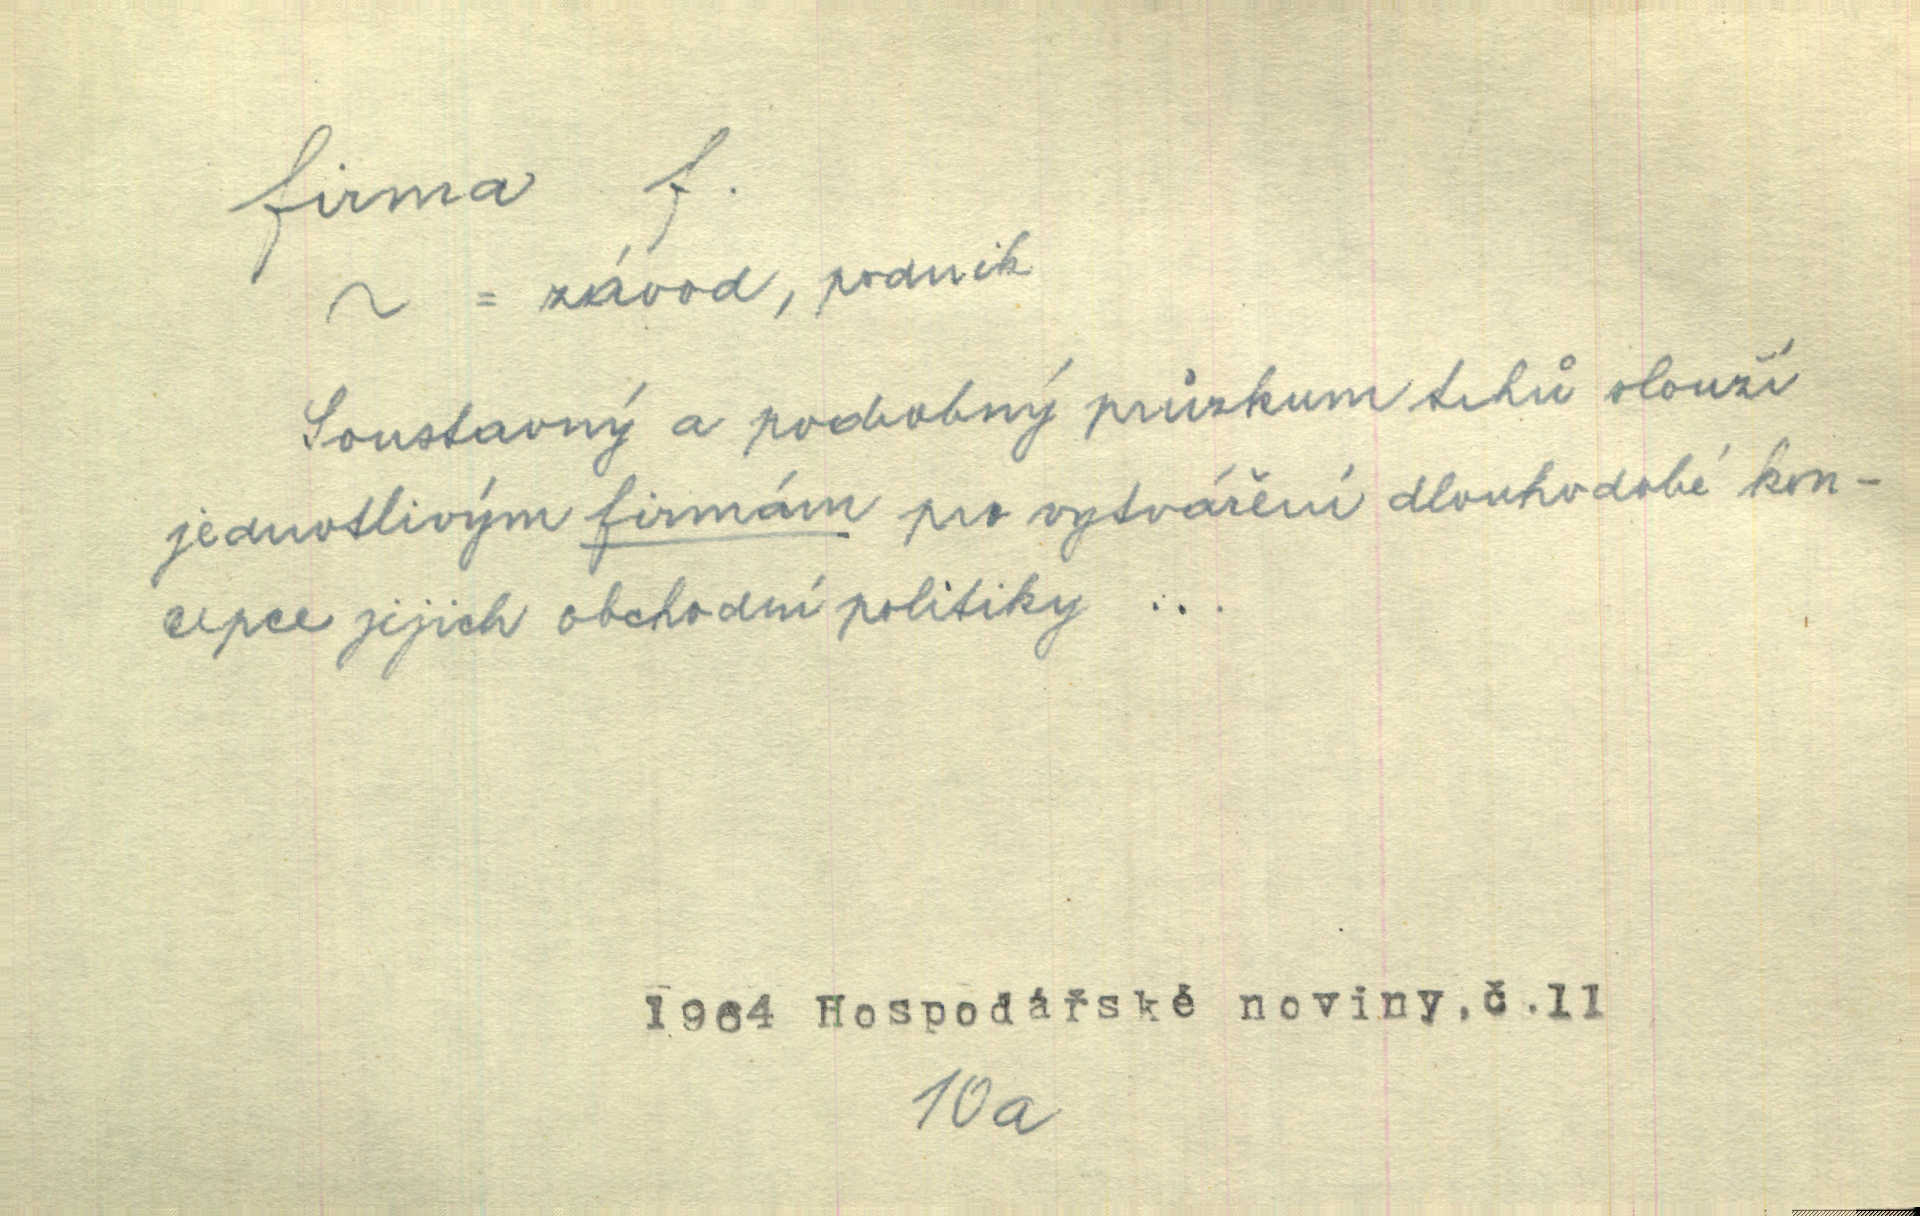 firma f.
~ = závod, podnik
Soustavný a podrobný průzkum trhů slouží
jednotlivým firmám pro vytváření dlouhodobé kon-
cepce jejich obchodní politiky ...
1964 Hospodářské noviny,č.11
10a